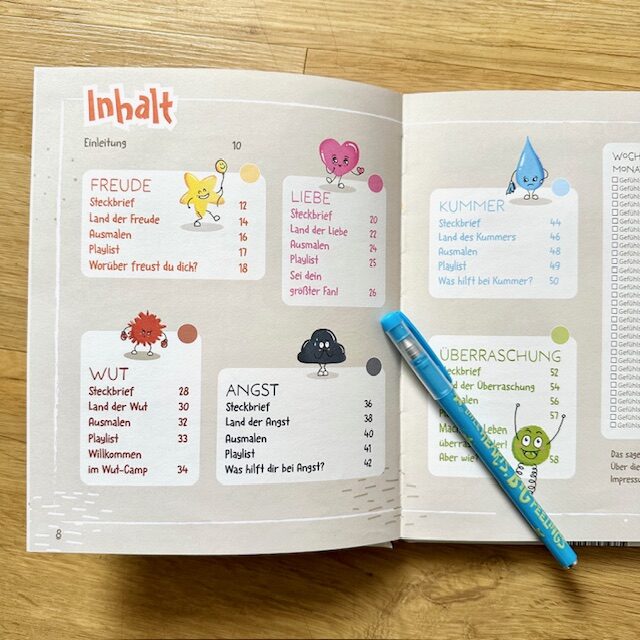 Inhalt
Einleitung 10
FREUDE
Steckbrief 12
Land der Freude 14
Ausmalen 16
Playlist 17
Worüber freust du dich? 18
LIEBE
Steckbrief 20
Land der Liebe 22
Ausmalen 24
Playlist 25
Sei dein
größter Fan! 26
WUT
Steckbrief 28
Land der Wut 30
Ausmalen 32
Playlist 33
Willkommen
im Wut-Camp 34
ANGST
Steckbrief 36
Land der Angst 38
Ausmalen 40
Playlist 41
Was hilft dir bei Angst? 42
8
KUMMER
Steckbrief 44
Land des Kummers 46
Ausmalen 48
Playlist 49
Was hilft bei Kummer? 50
ÜBERRASCHUNG
teckbrief 52
nd der Überraschung 54
malen 56
57
Leben
58
WOCH
MONA
Gefühls
Gefühls
Gefühls
Gefühls
Gefühls
Gefühls
Gefühls
Gefühls
Gefühls
Gefühls
Gefühls
Gefühls
Das sage
Über die
Impressu